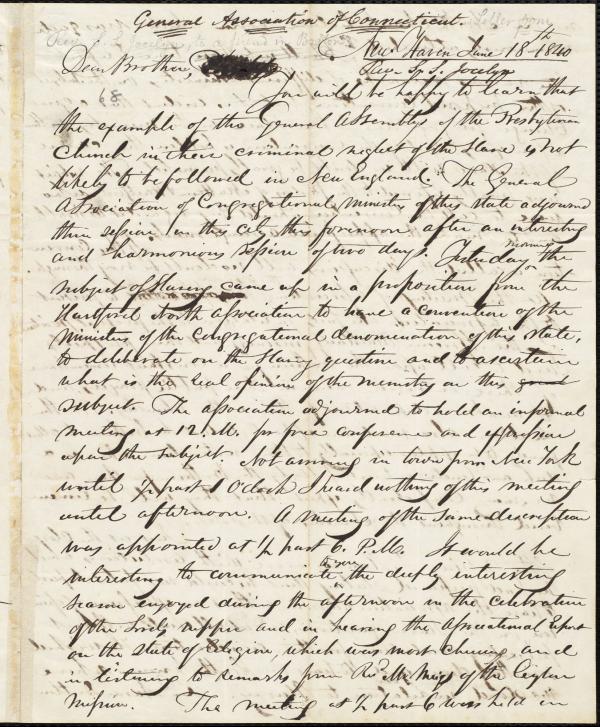 General Association of Connecticut.
New Haven June 18th 1840
Rev. S. S. Jocelyn
Dear Brother,
68
You will be happy to learn that
the example of the General Assembly of the Presbyterian
Church in their criminal neglect of the Slave is not
likely to be followed in New England. The General
Association of Congregational Ministers of this state adjourned
their session in this city this forenoon after an interesting
and harmonious session of two days. Tuesday morning the
subject of Slavery came up in a proposition from the
Hartford North Association to have a convention of the
Ministers of the Congregational denomination of this state,
to deliberate on the Slavery question and to ascertain
what is the real opinion of the ministry on this
subject. The association adjourned to hold an informal
meeting at 12. M. for free conference and expression
upon the subject. Not arriving in town from New York
until ½ past 1 O'clock I heard nothing of this meeting
until afternoon. A meeting of the same description
was appointed at ½ past 6. P.M. It would be
interesting to communicate to you the deeply interesting
season enjoyed during the afternoon in the celebration
of the Lords supper and in hearing the Associational Report
on the state of religion, which was most cheering, and
in listening to remarks from Rev. Mr. Meigs of the Ceylon
Mission. The meeting at ½ past 6 was held in